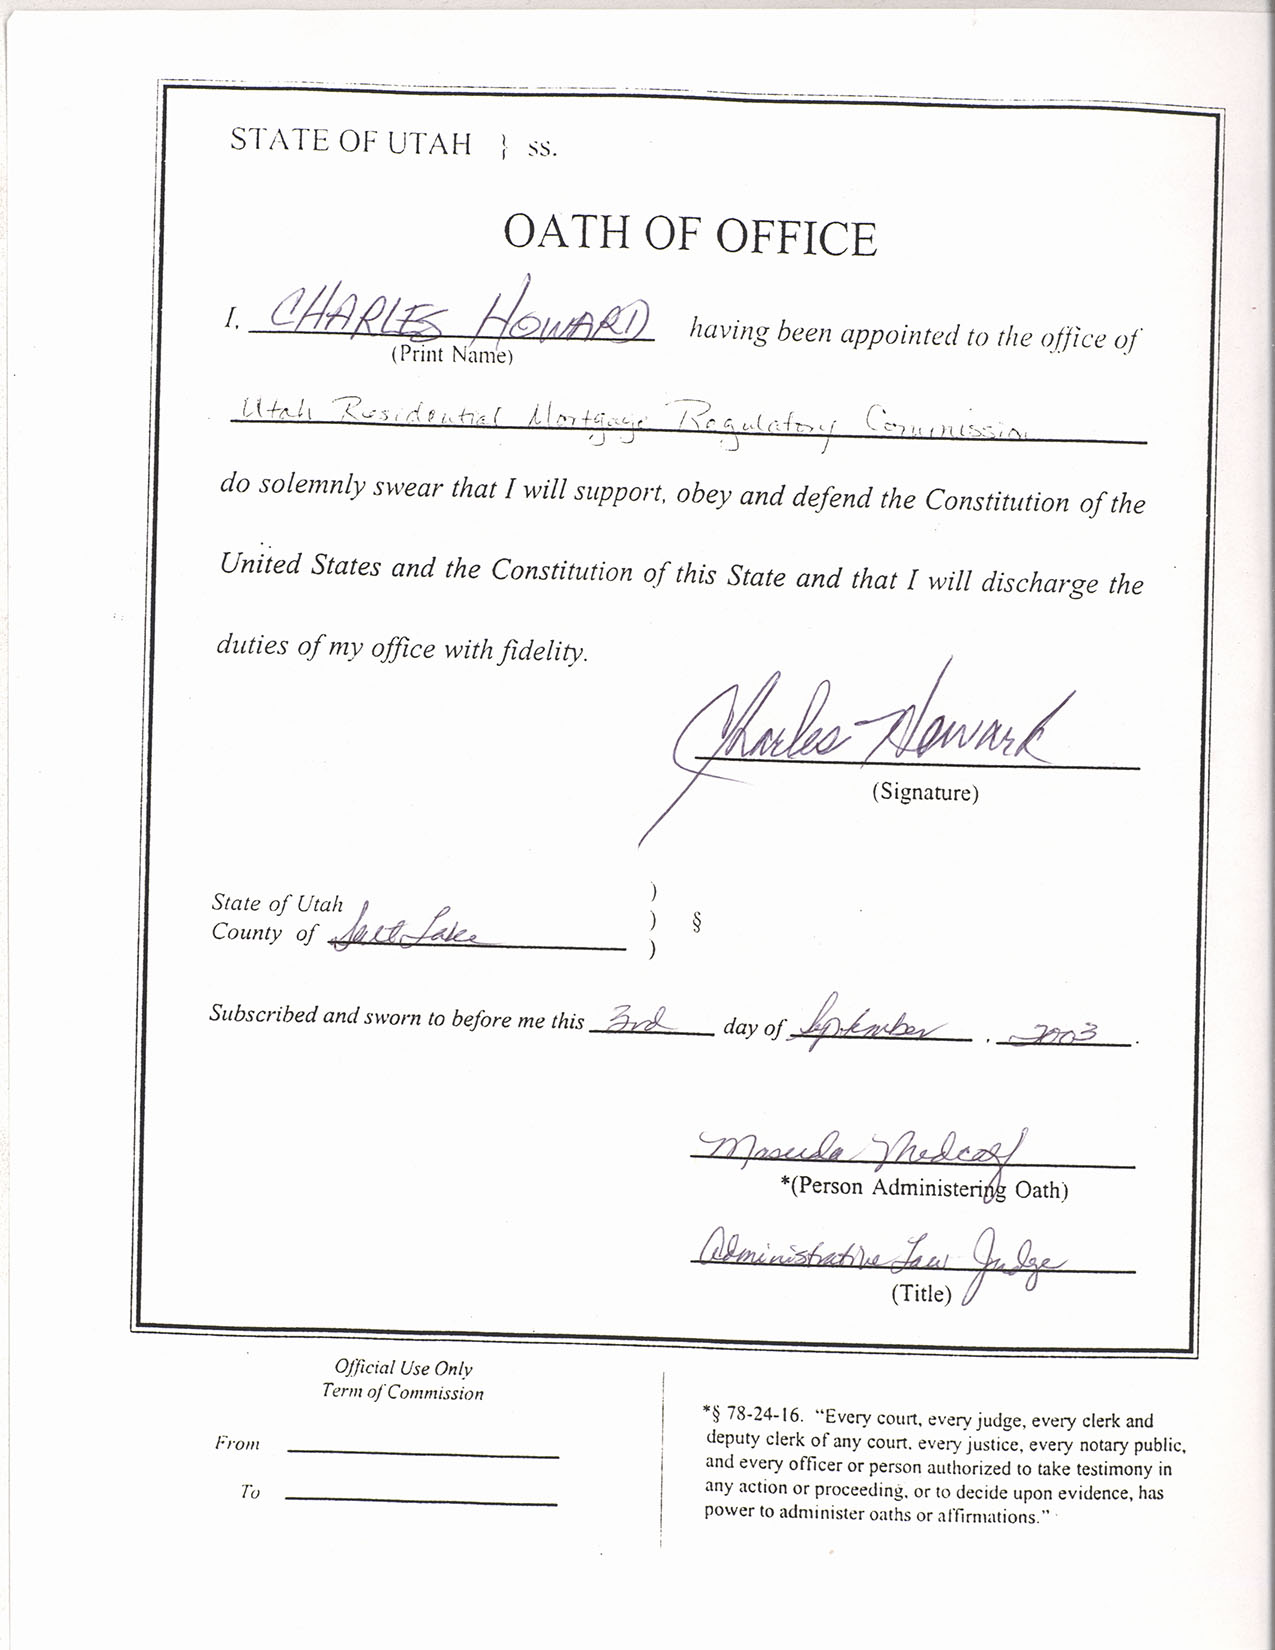 STATE OF UTAH } ss.
OATH OF OFFICE
I, CHARLES HOWARD having been appointed to the office of
(Print Name)
Utah Residential Mortgage Regulatory Commission
do solemnly swear that I will support, obey and defend the Constitution of the
United States and the Constitution of this State and that I will discharge the
duties of my office with fidelity.
Charles Howard
(Signature)
State of Utah )
County of Salt Lake ) §
)
Subscribed and sworn to before me this 3rd day of September, 2003.
Masuda Medcalf
*(Person Administering Oath)
Administrative Law Judge
(Title)
Official Use Only
Term of Commission
From
To
*§ 78-24-16. “Every court, every judge, every clerk and
deputy clerk of any court, every justice, every notary public,
and every officer or person authorized to take testimony in
any action or proceeding, or to decide upon evidence, has
power to administer oaths or affirmations.”